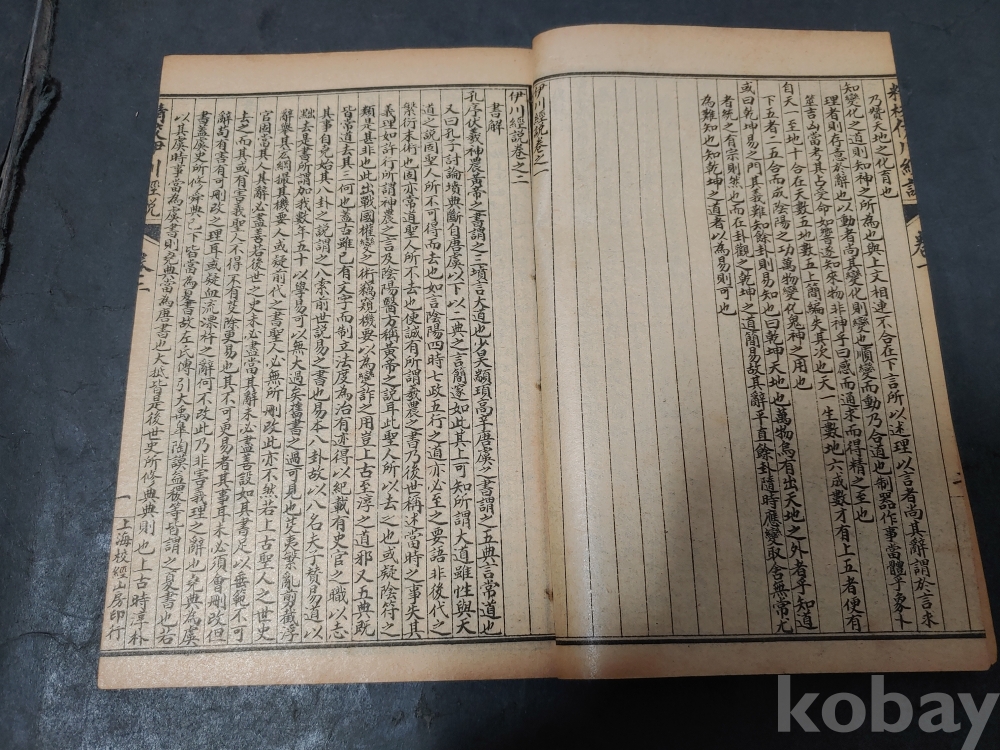 乃贊天地之化育也
知變化之道則知神之所為也與上文相連不合在下言所以述理以言者尚其辭謂於言求
理者則存意於辭也以動者尚其變化則變也順變而動乃合道也制器作事當體乎象卜
筮吉凶當考其占受命如響遂知來物非神乎曰感而通求而得精之至也
自天一至地十合在天數五地數五上簡編失其次也天一生數地六成數才有上五者便有
下五者二五合而成陰陽之功萬物變化鬼神之用也
或曰乾坤易之門其義難知餘卦則易知也曰乾坤天地也萬物烏有出天地之外者乎知道
者統之有宗則然也而在卦觀之乾坤之道簡易故其辭平直餘卦隨時應變取舍無常尤
為難知也知乾坤之道者以為易則可也
伊川經說卷之一
伊川經說卷之二
書解
孔序伏羲神農黃帝之書謂之三墳言大道也少昊顓頊高辛唐虞之書謂之五典言常道也
又曰孔子討論墳典斷自唐虞以下以二典之言簡邃如此其上可知所謂大道雖性與天
道之說固聖人所不可得而去也如言陰陽四時七政五行之道亦必至之要語非後代之
繁衍末術也固亦常道聖人所不去也使誠有所謂羲農之書乃後世稱述當時之事失其
義理如許行所謂神農之言及陰陽醫方稱黃帝之說耳此聖人所以去之也或疑陰符之
類是甚非也此出戰國權變之術竊窺機要以為變詐之用豈上古至淳之道邪又五典既
皆常道去其三何也蓋古雖已有文字而制立法度為治有迹得以紀載有史官之職以志
其事自堯始其八卦之說謂之八索前世說易之書也易本八卦故以八名夫子贊易道以
黜去是書所謂加我數年五十以學易可以無大過矣舊書之過可見也芟夷繁亂剪截浮
辭舉其宏綱撮其機要人或疑前代之書聖人必無所刪改此亦不然若上古聖人之世史
官固當其人其辭必盡善若後世之史未必盡當其辭未必盡善設如其書足以垂範不可
去之而其或有害義聖人不得不有芟除更易也其不可更易者其事耳未必須會刪改但
辭苟有害有可刪改之理耳或疑血流漂杵之辭何不改此乃非害義理之辭也堯典為虞
書蓋虞史所修舜典已下皆當為夏書故左氏傳引大禹皋陶謨益稷等皆謂之夏書也若
以其虞時事當為虞書則堯典當為唐書也大抵皆是後世史所修典典則也上古時淳朴
一
上海校經山房印行